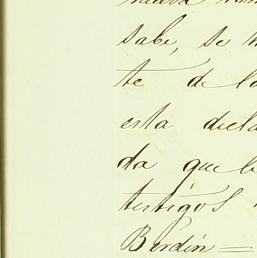 nueva
sabe, se
te de lo
esta decla
da que le
testigos
Berdin =